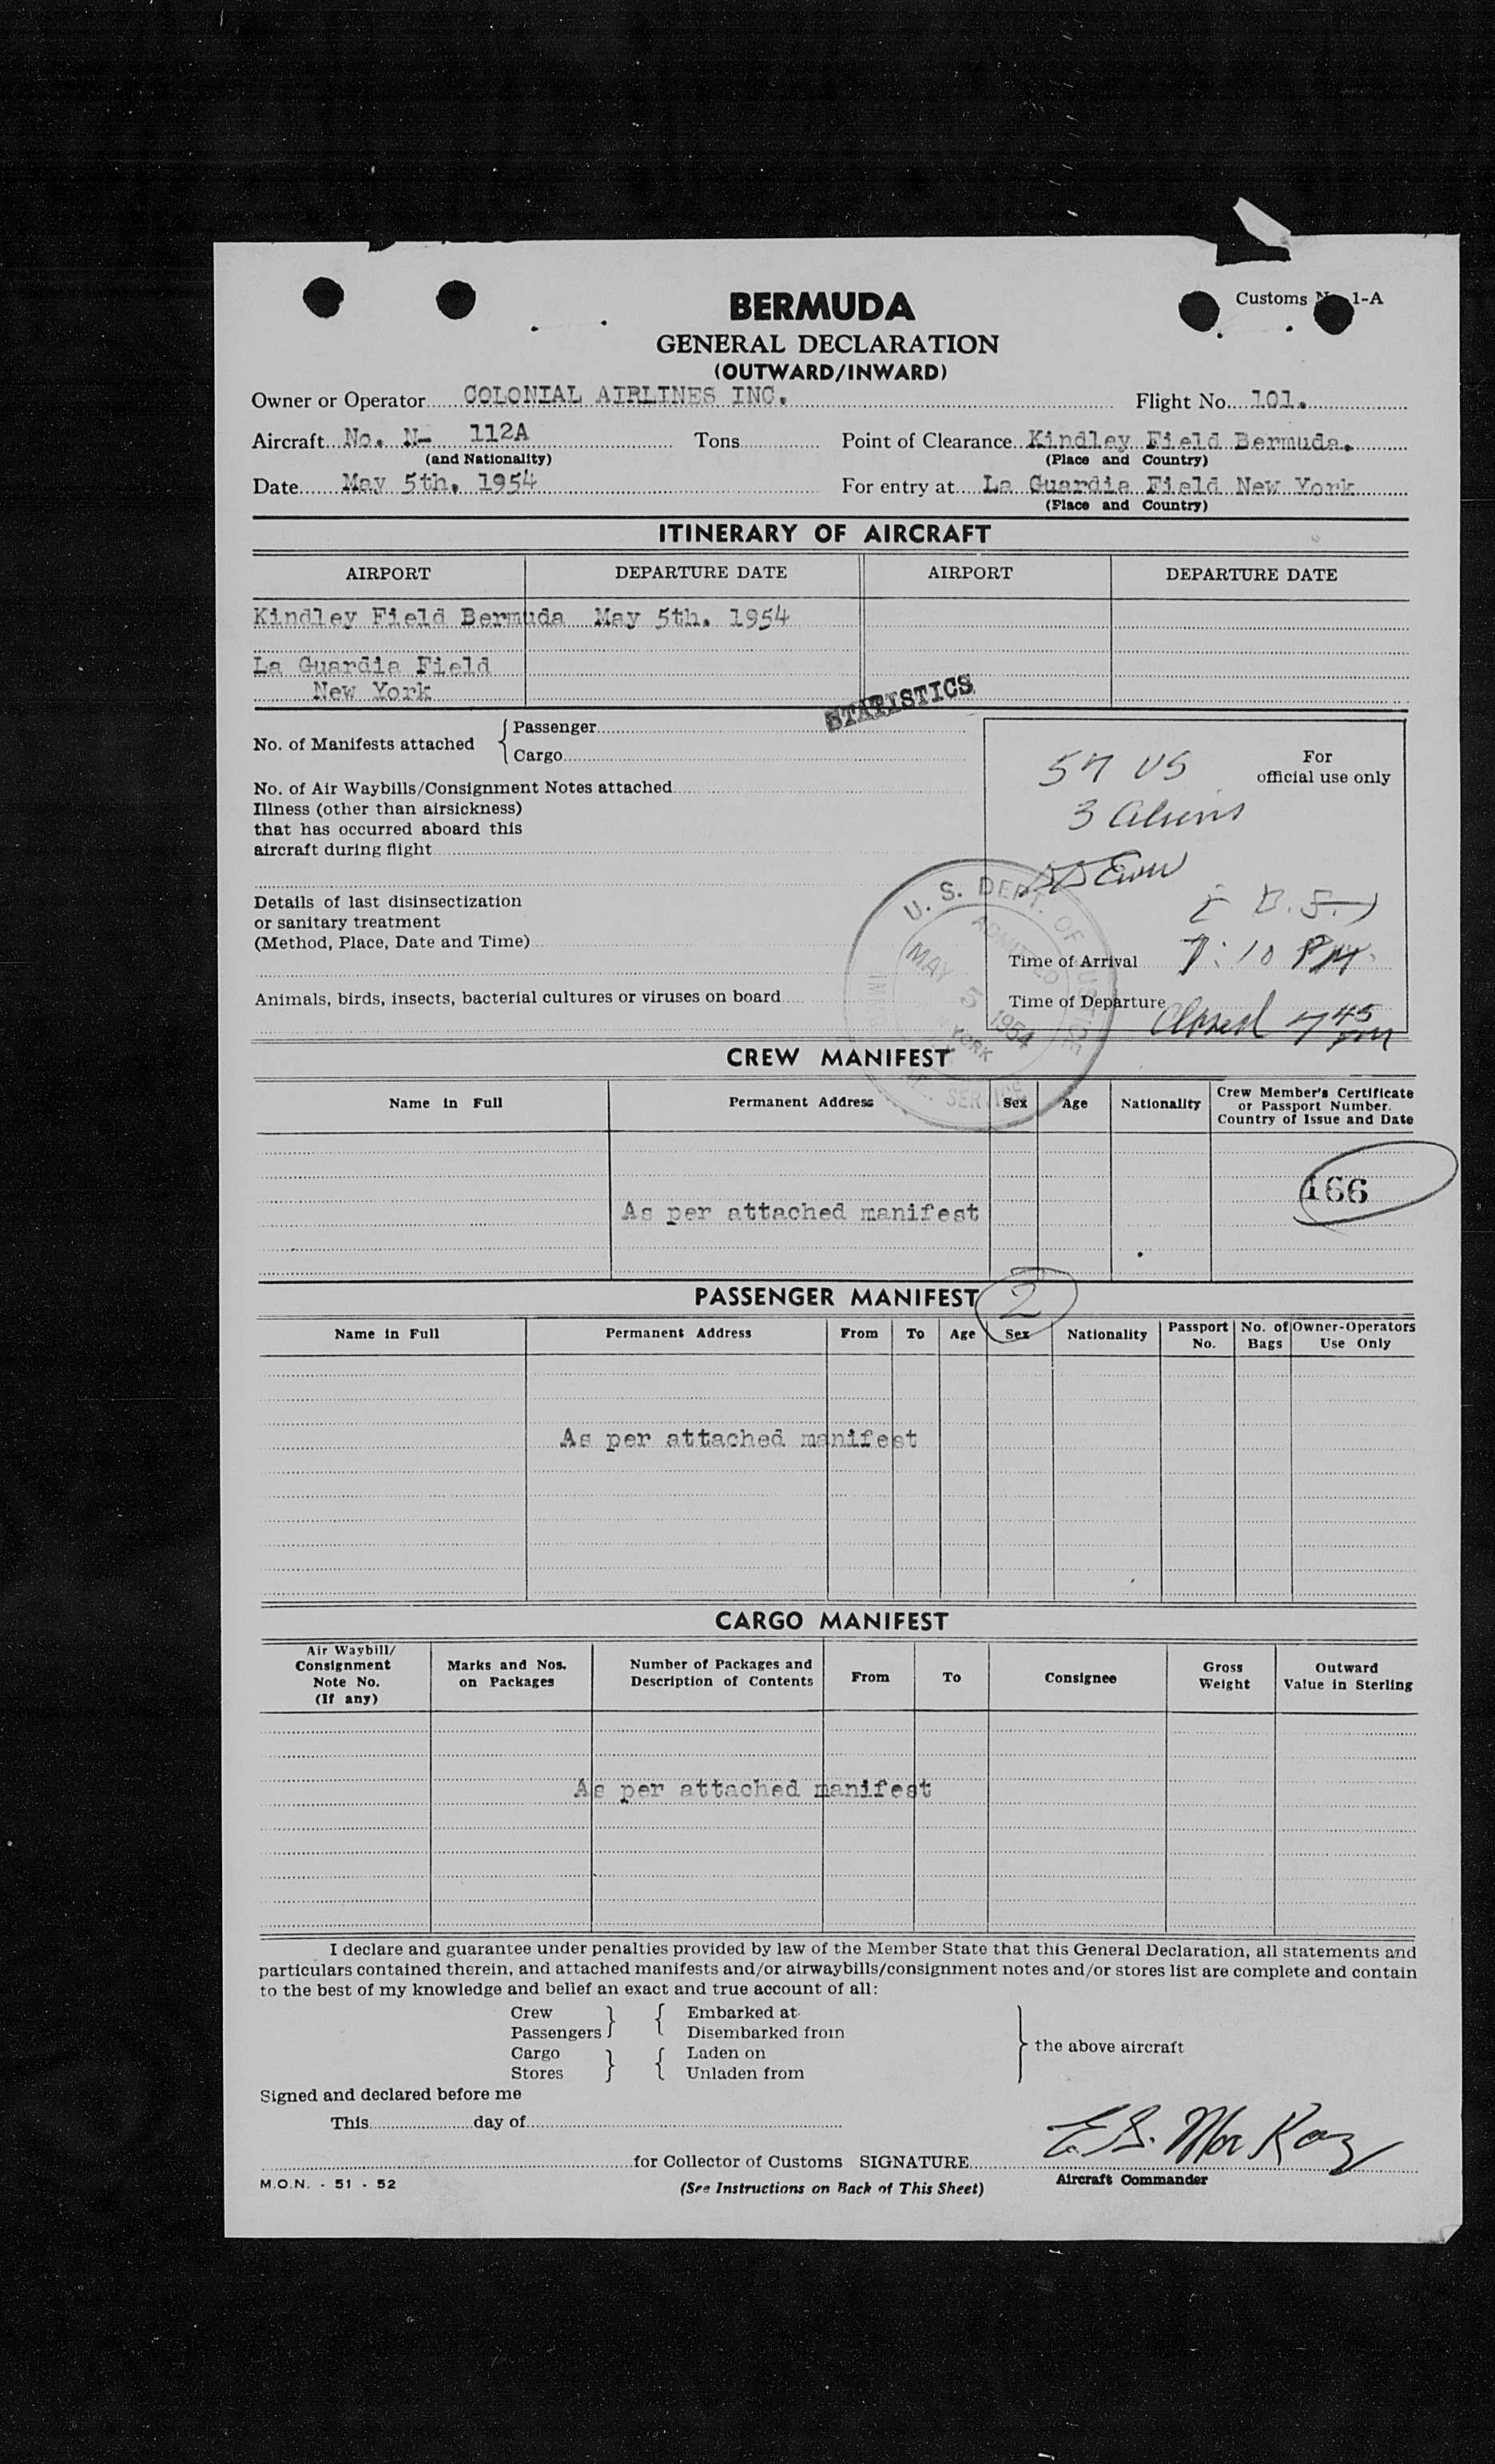 Customs No. 1-A
BERMUDA
GENERAL DECLARATION
(OUTWARD/INWARD)
Owner or Operator COLONIAL AIRLINES INC. Flight No. 101.
Aircraft No. N- 112A Tons Point of Clearance Kindley Field Bermuda.
(and Nationality) (Place and Country)
Date May 5th. 1954 For entry at La Guardia Field New York
(Place and Country)
ITINERARY OF AIRCRAFT
AIRPORT DEPARTURE DATE AIRPORT DEPARTURE DATE
Kindley Field Bermuda May 5th. 1954
La Guardia Field
New York
STATISTICS
No. of Manifests attached { Passenger
Cargo
57 US
For
official use only
3 Aliens
No. of Air Waybills/Consignment Notes attached
Illness (other than airsickness)
that has occurred aboard this
aircraft during flight
U. S. DEPT. OF JUSTICE
ADMITTED
MAY 5 1954
YORK
SERVICE
Details of last disinsectization
or sanitary treatment
(Method, Place, Date and Time)
Time of Arrival 7:10 PM.
Animals, birds, insects, bacterial cultures or viruses on board
Time of Departure
Closed 7 45 pm
CREW MANIFEST
Name in Full Permanent Address Sex Age Nationality Crew Member's Certificate
or Passport Number.
Country of Issue and Date
166
As per attached manifest
PASSENGER MANIFEST 2
Name in Full Permanent Address From To Age Sex Nationality Passport No. No. of Bags Owner-Operators Use Only
As per attached manifest
CARGO MANIFEST
Air Waybill/
Consignment
Note No.
(If any)
Marks and Nos.
on Packages
Number of Packages and
Description of Contents
From To Consignee
Gross
Weight
Outward
Value in Sterling
As per attached manifest
I declare and guarantee under penalties provided by law of the Member State that this General Declaration, all statements and
particulars contained therein, and attached manifests and/or airwaybills/consignment notes and/or stores list are complete and contain
to the best of my knowledge and belief an exact and true account of all:
Crew } { Embarked at
Passengers Disembarked from
Cargo } { Laden on } the above aircraft
Stores Unladen from
Signed and declared before me
This day of
E. S. MacKay
for Collector of Customs SIGNATURE
Aircraft Commander
M.O.N. - 51 - 52
(See Instructions on Back of This Sheet)